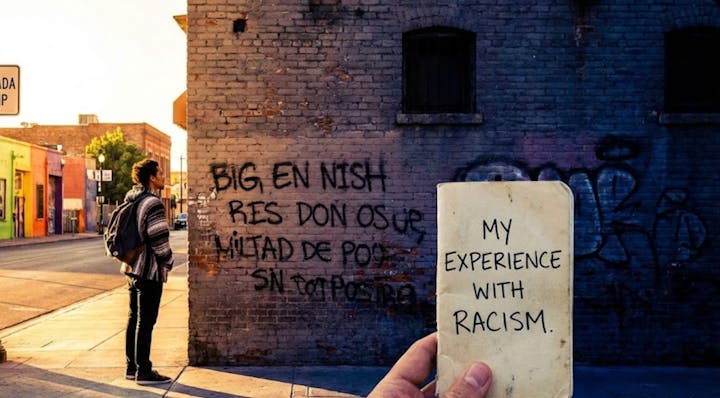 ADA
P
BIG EN NISH
RES DON OSUE,
MILTAD DE POO
SN
MY
EXPERIENCE
WITH
RACISM.